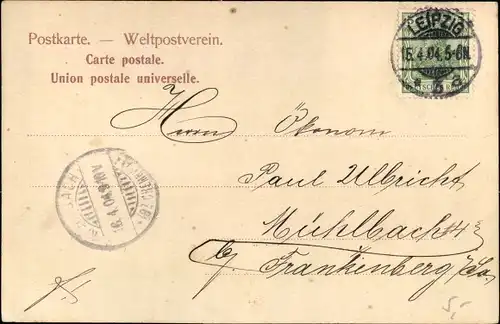 Postkarte. — Weltpostverein.
Carte postale.
Union postale universelle.
LEIPZIG
15.4.04.5-6N.
* 5 a
Herrn Ökonom
Paul Ulbricht
Mühlbach
b/ Frankenberg i/Sa.
6.4.04.9-10V
5,-